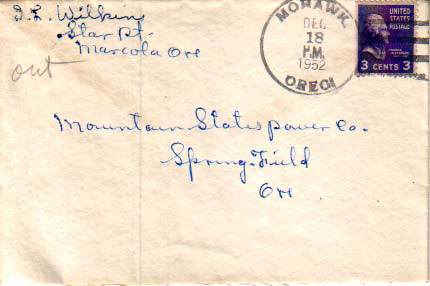 I. L. Wilkins
Star Rt.
Marcola Ore
out
MOHAWK,
DEC
18
P.M.
1952
OREG
UNITED
STATES
POSTAGE
3 CENTS 3
Mountain States Power Co.
Springfield
Ore